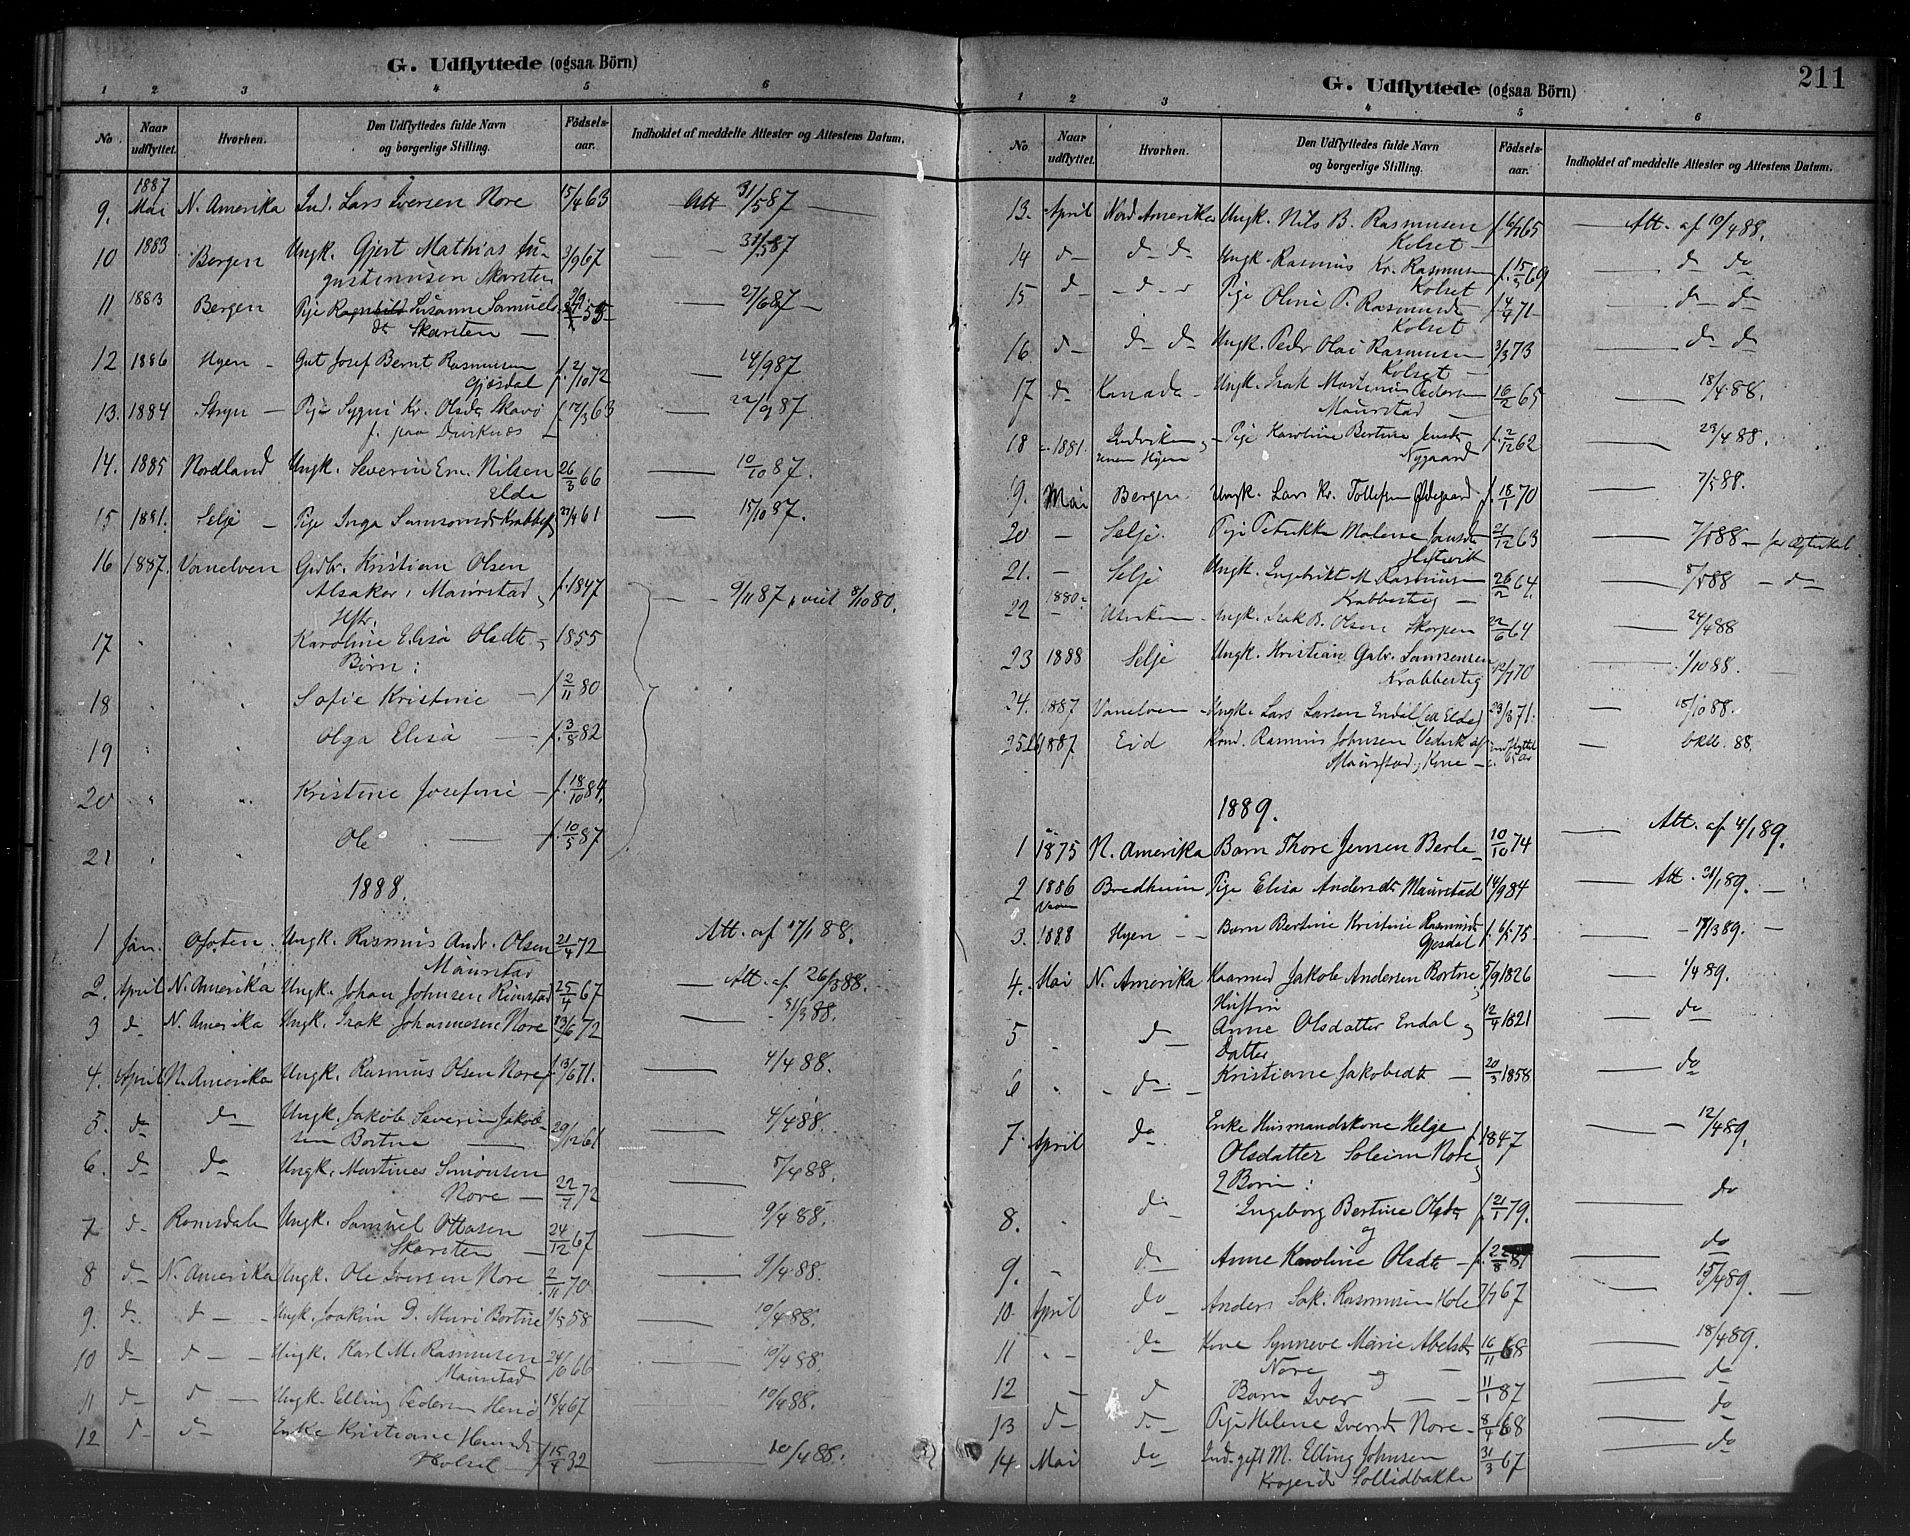 G. Udflyttede (ogsaa Börn)
1 2 3 4 5 6
No Naar udflyttet. Hvorhen. Den Udflyttedes fulde Navn og borgerlige Stilling. Födsels-aar. Indholdet af meddelte Attester og Attestens Datum.
9. 1887 Mai N. Amerika Ind. Lars Iversen Nore 15/4 63 Att 31/5 87 —
10 1883 Bergen Ungk. Gjert Mathias Au-
gustinusen Skarsten 3/9 67 — 31/5 87
11 1883 Bergen Pige Ragnhild Susanne Samuels
dt Skarsten — 55 — 27/6 87 —
12 1886 Hyen - Gut Josef Bernt Rasmusen
Gjøsdal f. 2/10 72 — 14/9 87
13. 1884 Stryn — Pige Sygni Kr. Olsdr Skavø
f. paa — f 12/3 63 — 22/9 87.
14. 1885 Nordland Ungk. Severin Em. Nilsen
Elde 26/3 66 — 10/10 87.
15 1881. Selje — Pige Inga Samsonsdr Krabbest 27/4 61 — 15/10 87.
16 1887. Vanelven Gdbr. Kristian Olsen
Alsaker, Maurstad, f. 1847 — 9/11 87, 8/10 80.
Hstr.
17 " " Karoline Elisa Olsdtr - 1855
Børn:
18 " " Sofie Kristine — f 2/11 80
19 " " Olga Elisa — f. 3/8 82
20 " " Kristine Josefine — f. 18/10 84.
21 " " Ole — f. 10/5 87
1888.
1 Jan. Ofoten. Ungk. Rasmus Andr. Olsen
Maurstad 21/4 72 Att. af 17/1 88.
2. April N. Amerika Ungk. Johan Johnsen Rimstad 25/4 67 — Att. af 26/3 88.
3 d— N. Amerika Ungk. Isak Johannesen Nore 13/6 72 — 31/3 88.
4. April N. Amerika Ungk. Rasmus Olsen Nore f 13/6 71. — 4/4 88.
5. do do Ungk. Jakob Severin Jakob-
sen Bortne — 29/12 61 — 4/4 88.
6. d— do Ungk. Martines Simonsen
Nore — 22/7 72 — 5/4 88.
7 d— Romsdalen Ungk. Samuel Ottosen
Skarsten — 24/12 67 — 9/4 88.
8 d— N. Amerika Ungk. Ole Iversen Nore 2/11 70 — 9/4 88.
9. d— d— — Ungk. Joakim D. Muri Bortne 9/5 58 — 10/4 88.
10 d— d— — Ungk. Karl M. Rasmusen
Maurstad 24/10 66 — 10/4 88.
11 d— d — Ungk. Elling Pedersen Henø 18/4 67 — 10/4 88.
12 d— d— Enke Kristiane Hansdr
— f 15/4 32 — 10/4 88.
G. Udflyttede (ogsaa Börn) 211
1 2 3 4 5 6
No Naar udflyttet. Hvorhen. Den Udflyttedes fulde Navn og borgerlige Stilling. Födsels-aar. Indholdet af meddelte Attester og Attestens Datum.
13. April Nord Amerika Ungk. Nils B. Rasmusen
Kolset — 65 — Att. af 10/4 88.
14 d— d— d— Ungk. Rasmus Kr. Rasmusen
Kolset f. 15/5 69 — d— do
15 d — d— Pige Oline P. Rasmusdr
Kolset 14/4 71 — d— d—
16 d— d— d— Ungk. Peder Olai Rasmusen
Kolset — 3/3 73 — d— d—
17 d— Kanada — Ungk. Isak Martinus Pedersen
Maurstad — 16/2 65 — 18/4 88.
18 1881. Indviken — Pige Karoline Bertine Jensdr
Nygaard f. 2/12 62 — 23/4 88.
19. Mai Bergen Ungk. Lars Kr. Tollefsen Ødegaard f. 18/1 70 — 7/5 88.
20 — Selje. Pige Petrikke Malene Jansdr
21/12 63 — 7/5 88 —
21. — Selje Ungk. Ingebrikt M. Rasmusen
Krabbestig — 26/2 64. — 8/5 88 — d—
22 1880 — Ungk. Isak B. Olsen Skorpen 22/6 64 — 24/4 88
23 1888 Selje Ungk. Kristian Gabr. Samsonsen
Krabbestig 12/7 70 — 1/10 88.
24. 1887 Vanelven — Ungk. Lars Larsen Endal (el Elde) 23/3 71. — 15/10 88.
25 26 1887. Eid Kone. Rasmus Johnsen
Maurstad, Kone — oktb. 88.
1889.
1 1875 N. Amerika Barn Thore Jensen Berle — 10/10 74 — Att. af 4/1 89.
2 1886 Bredheim Pige Elisa Andersdt Maurstad 14/9 84 — Att. 28/1 89. —
3. 1888 Hyen — Barn Bertine Kristine Rasmusdr
Gjøsdal f. 6/5 75. — 19/3 89. —
4. Mai N. Amerika Kaarmd Jakob Andersen Bortne, 5/9 1826 — 1/4 89.
Hustru
5 " d— Anne Olsdatter Endal og 12/4 1821 — do
Datter
6 " d— Kristiane Jakobsdt — 20/3 1858 — do
7. April do Enke Husmandskone Helge
Olsdatter Soleim Nore, f 1847 — 12/4 89.
2 Børn:
8. " d— Ingeborg Bertine Olsdr f. 21/1 79. — do
og
9. - d— Anne Karoline Olsdt — f. 22/8 81 — do
10 April do Anders Sak. Rasmusen Hole 7/7 67 — 15/4 89.
11 " — do Kone Synneve Marie Abelsdr
Nore og — 16/11 68 — 18/4 89.
12 — d Barn Iver — 11/1 87 — do
13 d— d— Pige Helene Iversdt Nore — 8/4 68 — do
14 Mai do Ind. gift M. Elling Johnsen
Sollidbakke 31/3 67 — do